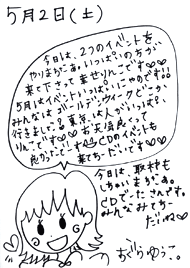 5月2日(土)
今日は、2つのイベントを
やりまちたあ。いっぱいのちが
来て下さって幸せりんこです♡♡
5月はイベントいっぱいにゃのです!!
みんなはゴールデンウィークどっか
行きました?東京は人がいっぱい?
りんこです♡♡お天気良くって
良かったです!! CDのイベントも
来てちょーだいです♡♡
今日は、取材も
しちゃいまちたあ。
CDでたさんです。
みんなみてちょ
だいね♡
おぐらゆうこ